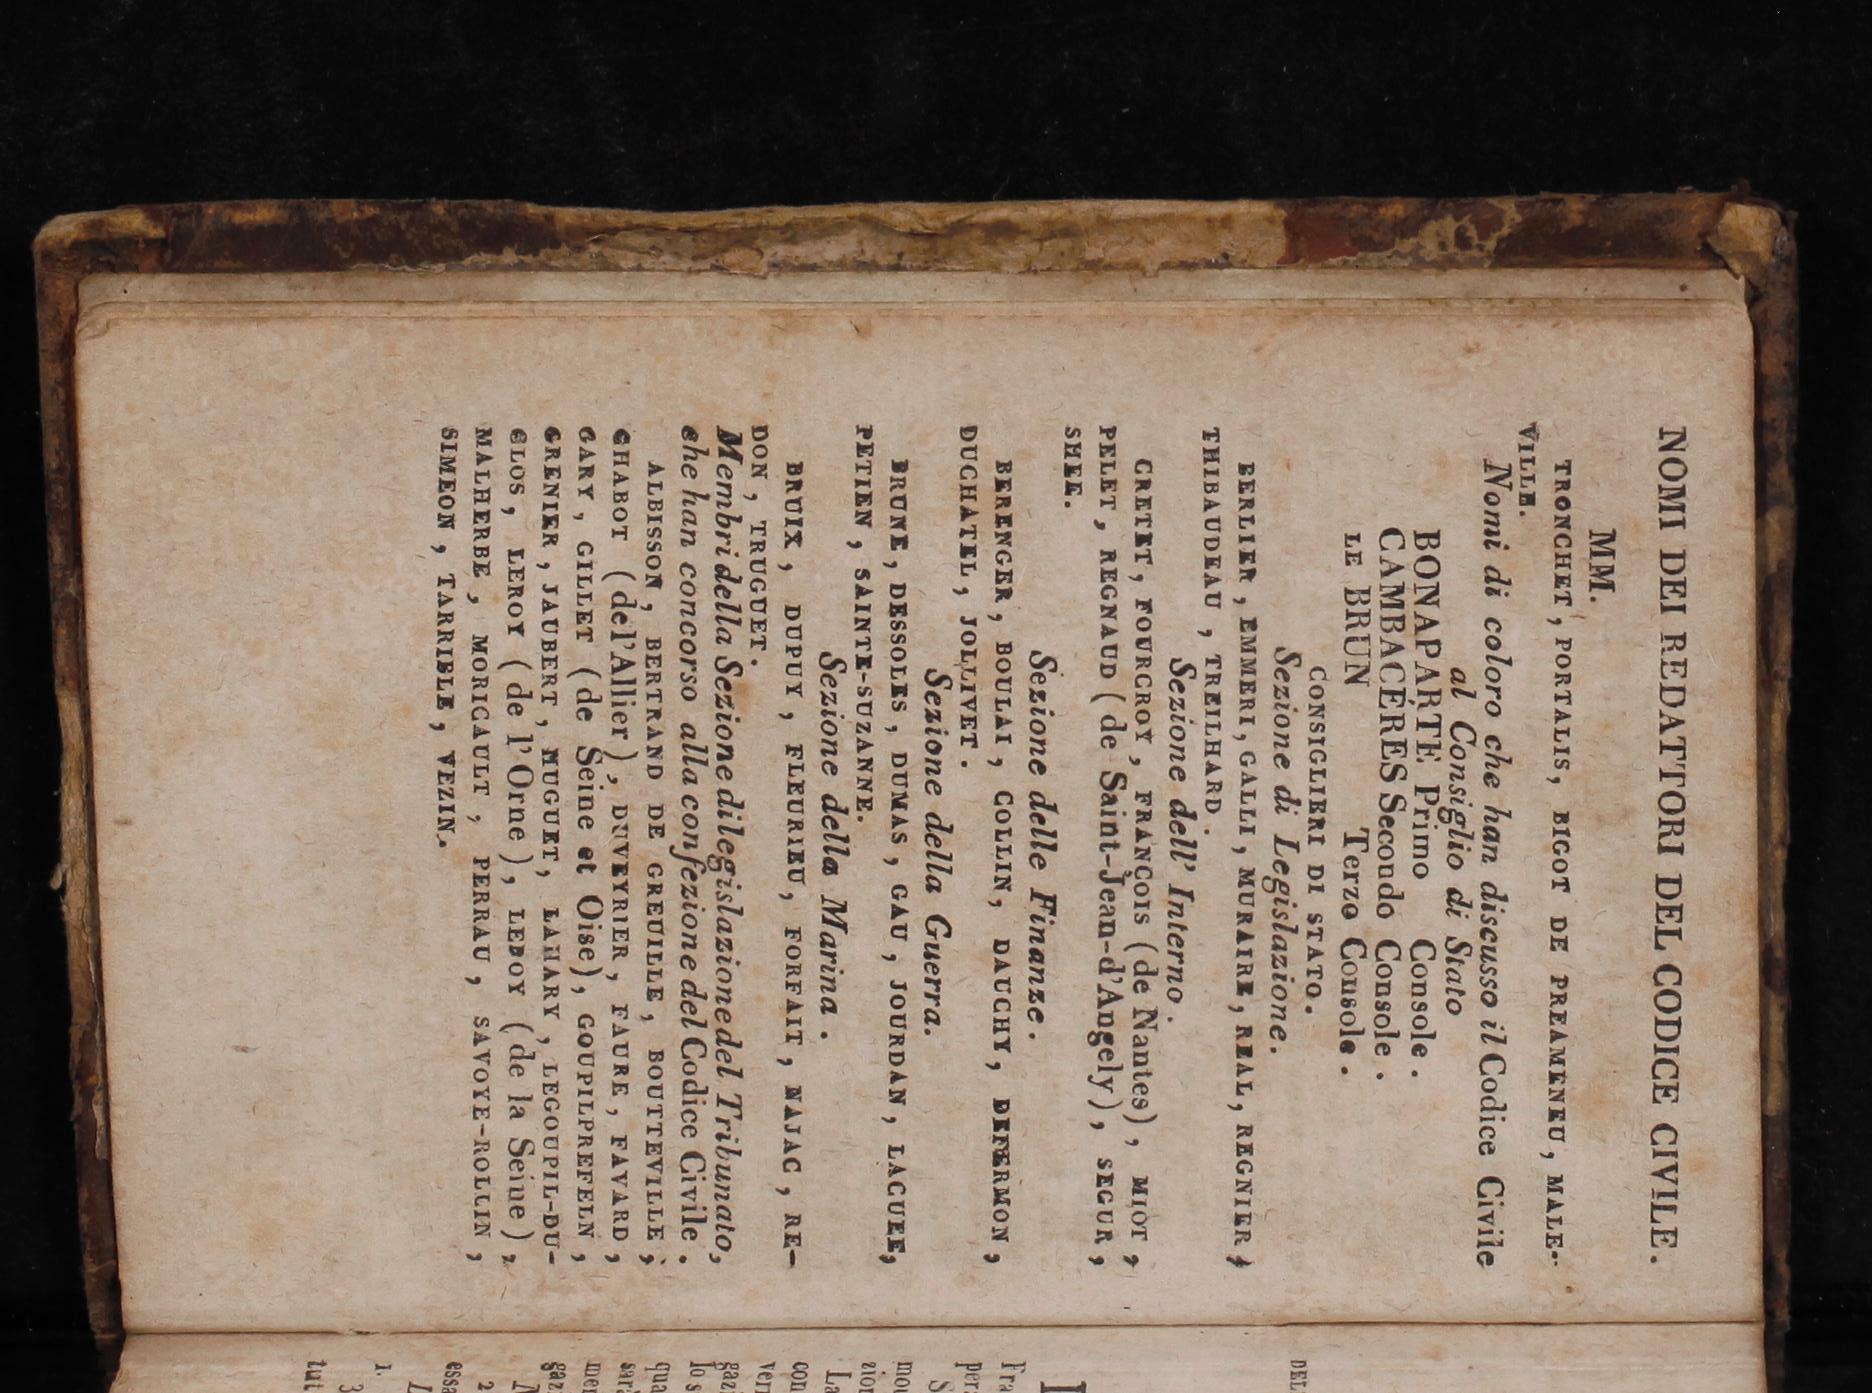 NOMI DEI REDATTORI DEL CODICE CIVILE.
MM.
TRONCHET, PORTALIS, BIGOT DE PREAMENEU, MALE-
VILLE.
Nomi di coloro che han discusso il Codice Civile
al Consiglio di Stato
BONAPARTE Primo Console.
CAMBACÉRES Secondo Console.
LE BRUN Terzo Console.
CONSIGLIERI DI STATO.
Sezione di Legislazione.
BERLIER, EMMERI, GALLI, MURAIRE, REAL, REGNIER,
THIBAUDEAU, TREILHARD.
Sezione dell' Interno.
CRETET, FOURCROY, FRANÇOIS (de Nantes), MIOT,
PELET, REGNAUD (de Saint-Jean-d'Angely), SEGUR,
SHEE.
Sezione delle Finanze.
BERENGER, BOULAI, COLLIN, DAUCHY, DEFERMON,
DUCHATEL, JOLLIVET.
Sezione della Guerra.
BRUNE, DESSOLES, DUMAS, GAU, JOURDAN, LACUEE,
PETIEN, SAINTE-SUZANNE.
Sezione della Marina.
BRUIX, DUPUY, FLEURIEU, FORFAIT, NAJAC, RE-
DON, TRUGUET.
Membri della Sezione di legislazione del Tribunato,
che han concorso alla confezione del Codice Civile.
ALBISSON, BERTRAND DE GREUILLE, BOUTTEVILLE,
CHABOT (del'Allier), DUVEYRIER, FAURE, FAVARD,
GARY, GILLET (de Seine et Oise), GOUPILPREFELN,
GRENIER, JAUBERT, MUGUET, LAHARY, LEGOUPIL-DU-
CLOS, LEROY (de l'Orne), LEROY (de la Seine),
MALHERBE, MORICAULT, PERRAU, SAVOYE-ROLLIN,
SIMEON, TARRIBLE, VEZIN.